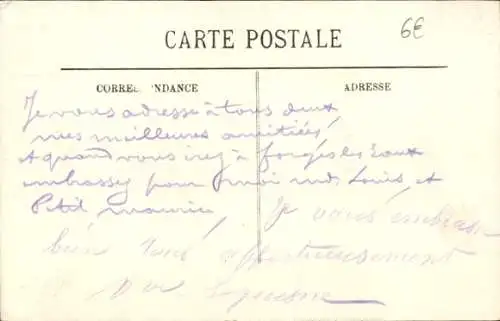 6€
CARTE POSTALE
CORRESPONDANCE
ADRESSE
Je vous adresse à tous deux
mes meilleures amitiés
et quand vous irez à forges les Eaux
embrassez pour moi Louis, et
Petit maurice, Je vous embrasse
bien affectueusement